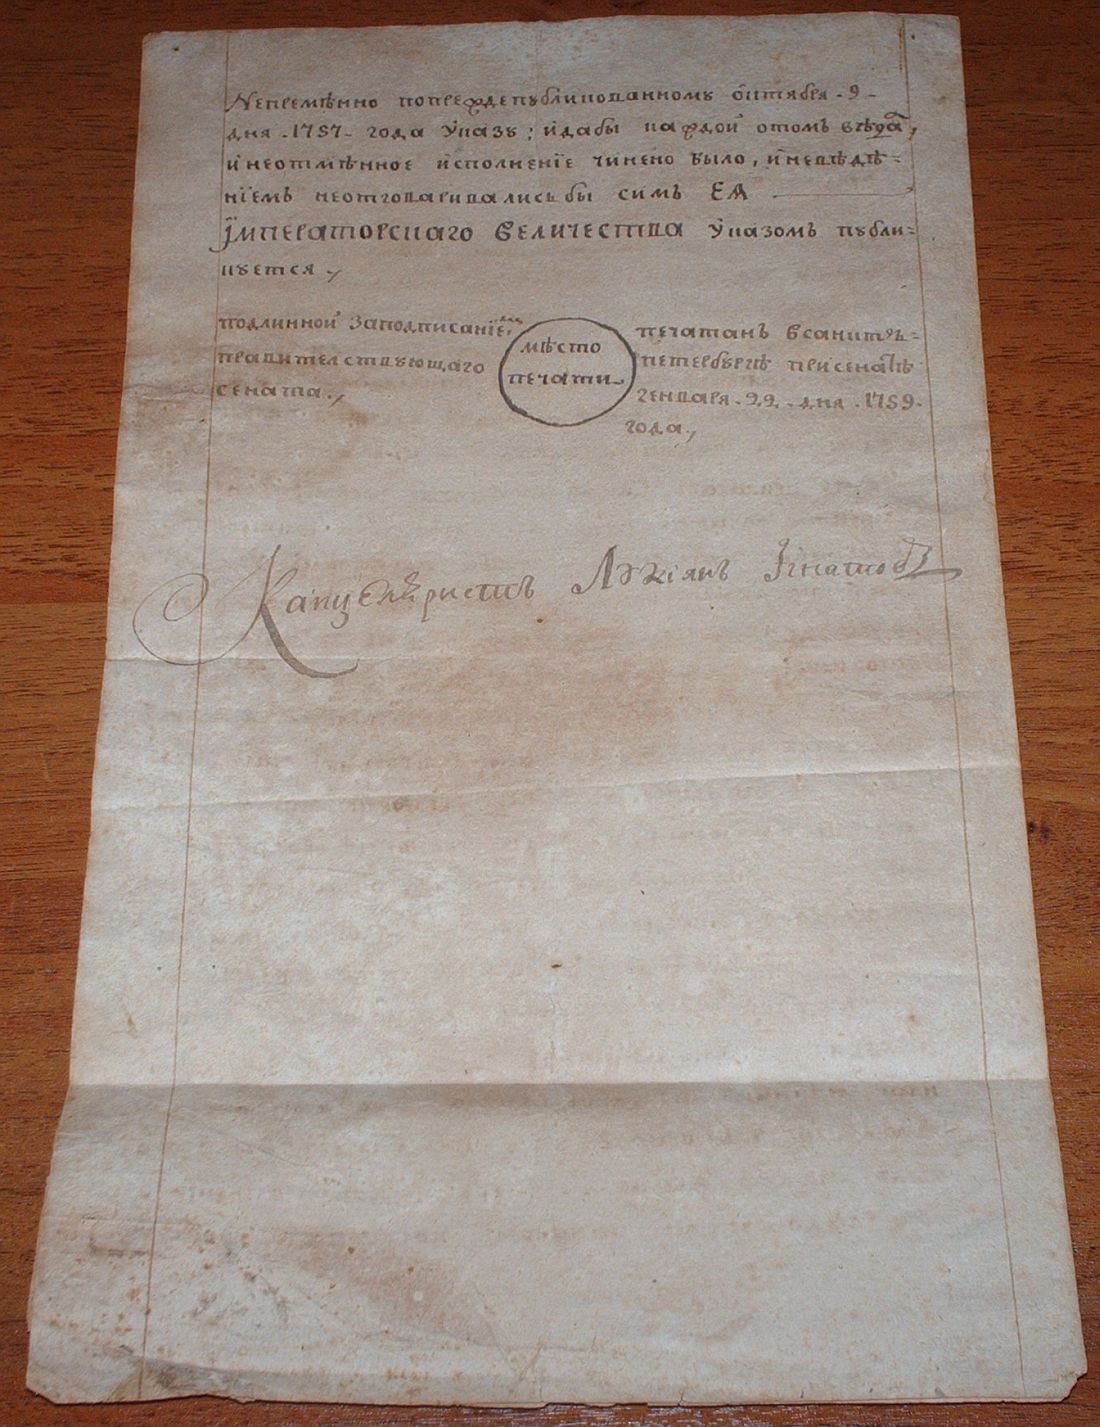 Непремѣнно попреждепубликованному октября - 9 -
дня - 1757 - года указу; идабы каждой отомъ вѣда,
инеотмѣнное исполненїе чинено было, иневѣдѣ=
нїемъ неотговаривалисьбы симъ ЕЯ
ІМПЕРАТОРСКАГО ВЕЛИЧЕСТВА указомъ публи=
куется
подлинной заподписанїемъ
правителствующаго
сената
мѣсто
печати
печатанъ всанктъ=
петербургѣ присенатѣ
генваря - 22 - дня - 1759 -
года
Канцеляристъ Лукіянъ Игнатовъ